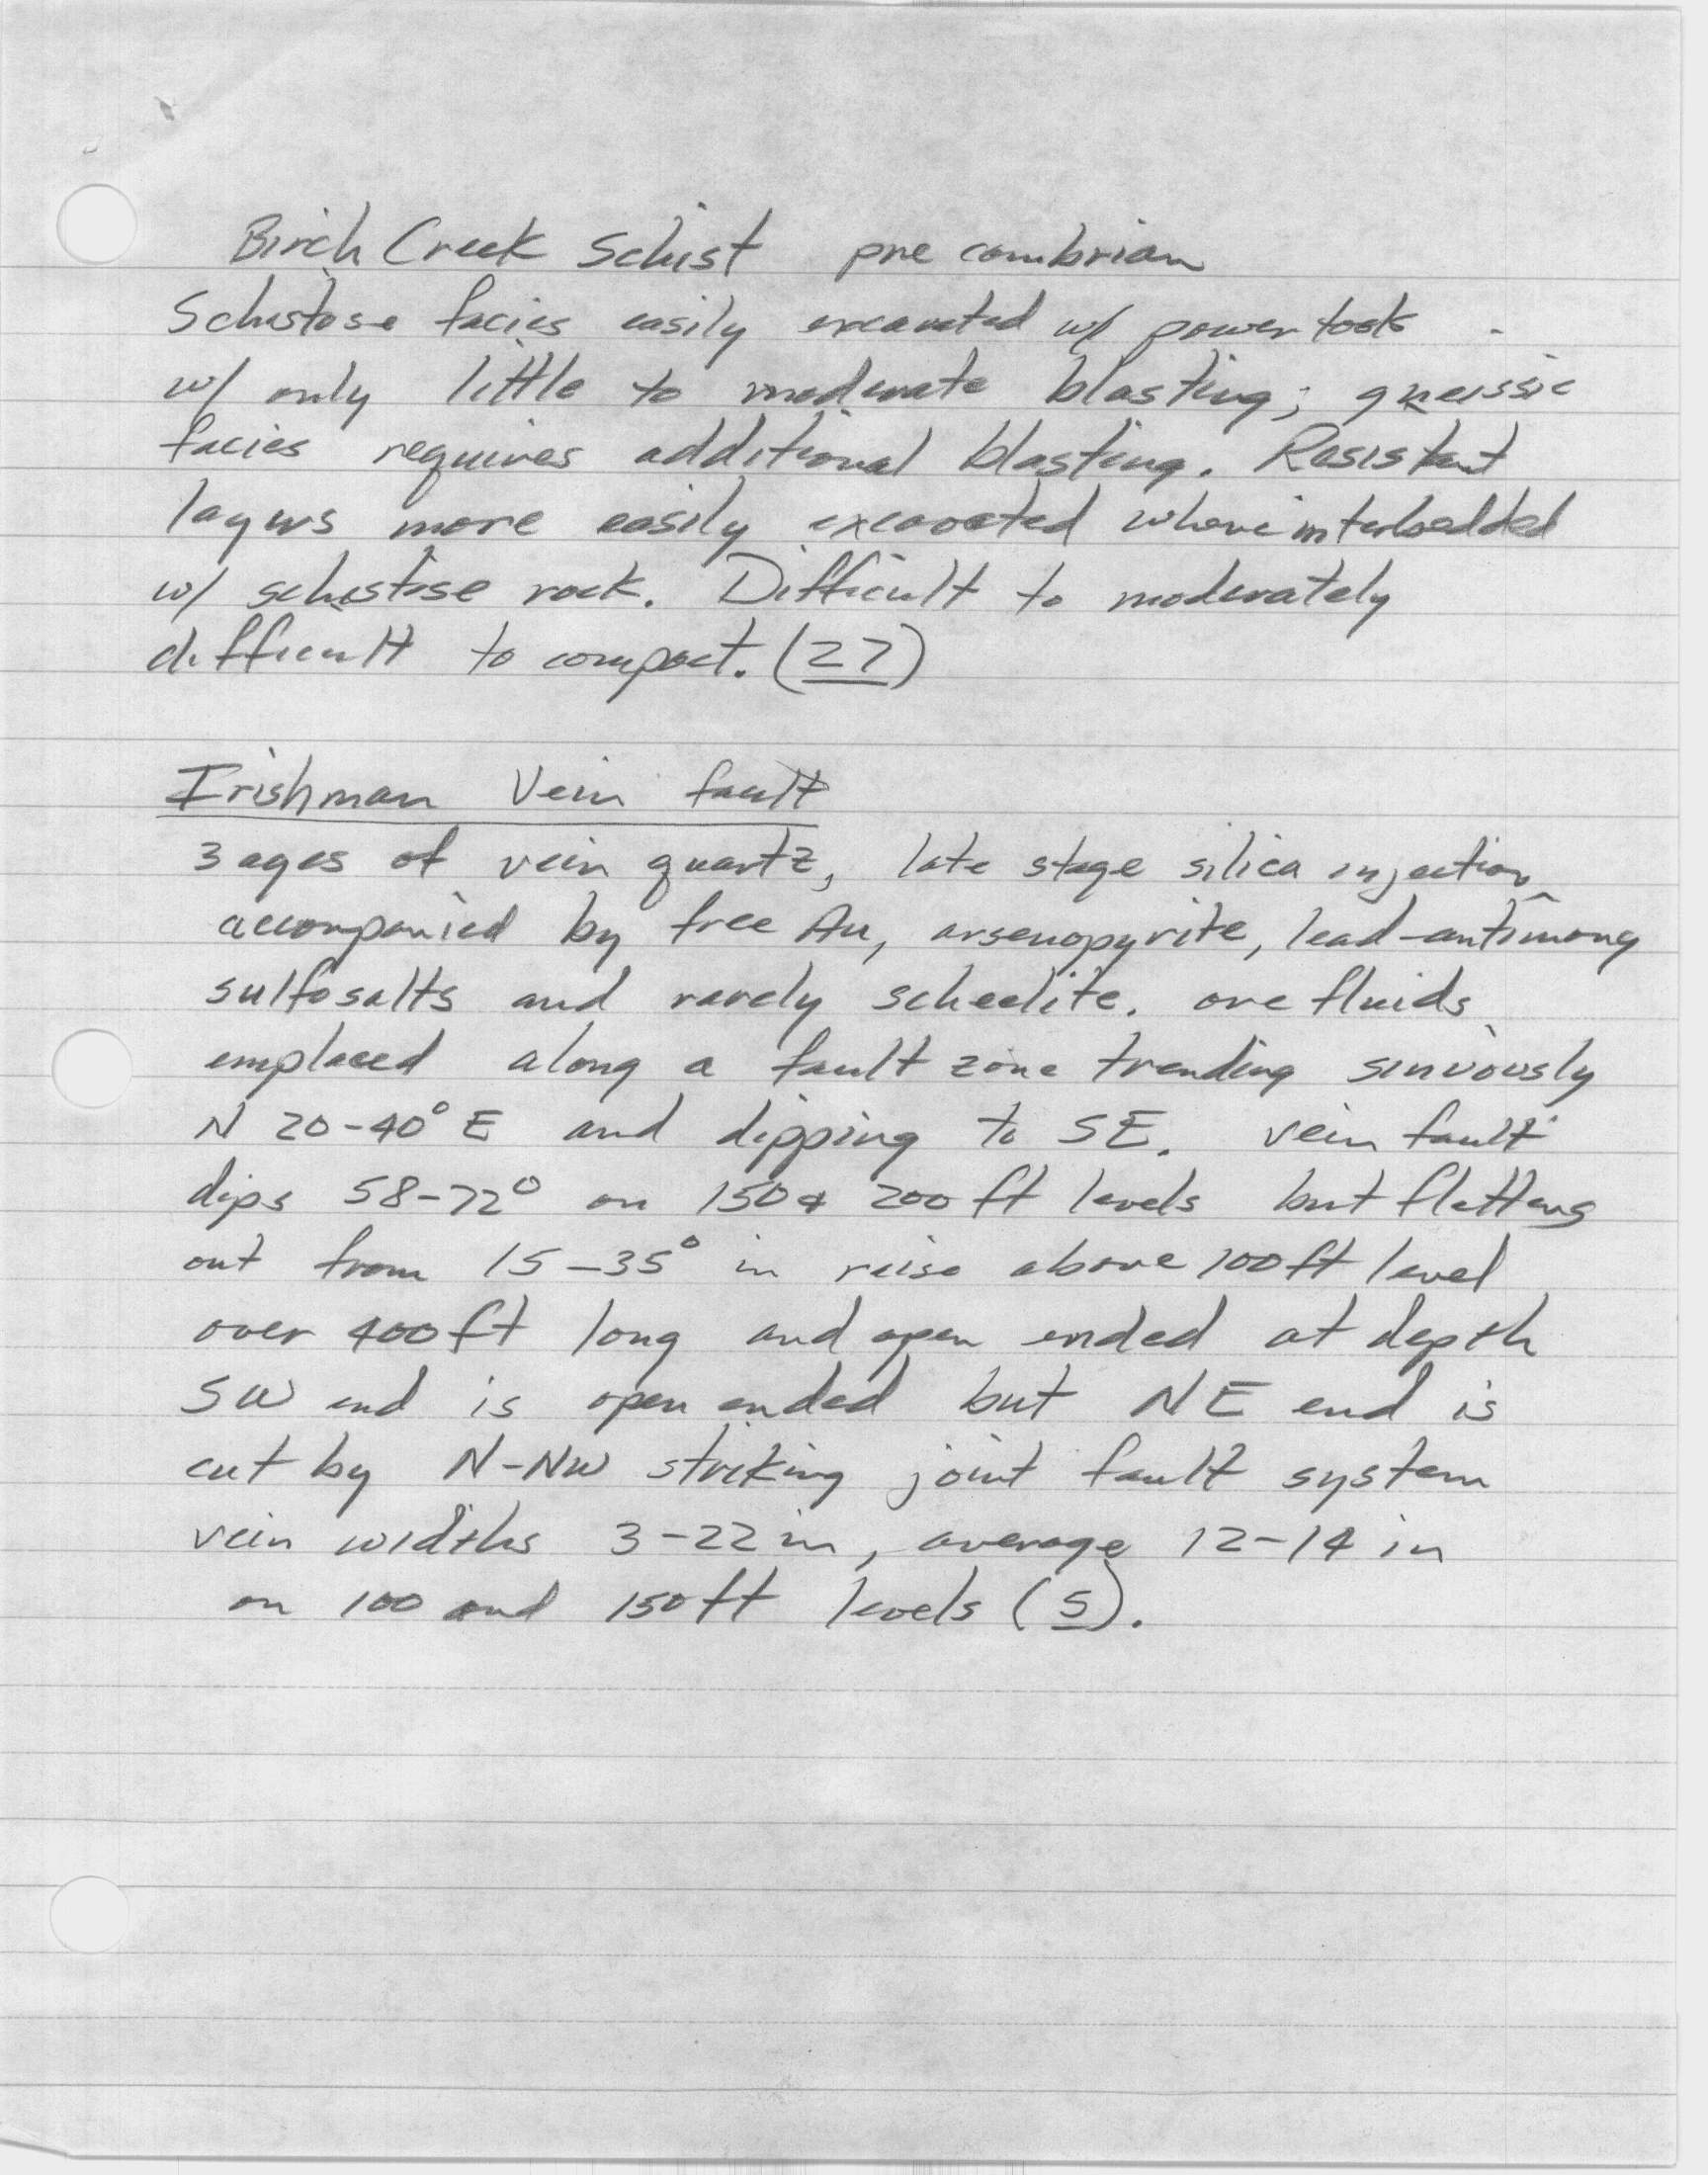 Birch Creek Schist pre cambrian
Schistose facies easily excavated w/ power tools
w/ only little to moderate blasting; gneissic
facies requires additional blasting. Resistant
layers more easily excavated where interbedded
w/ schistose rock. Difficult to moderately
difficult to compact. (27)
Irishman Vein fault
3 ages of vein quartz, late stage silica injection
accompanied by free Au, arsenopyrite, lead-antimony
sulfosalts and rarely scheelite. ore fluids
emplaced along a fault zone trending sinuously
N 20-40° E and dipping to SE. vein fault
dips 58-72° on 150 & 200 ft levels but flattens
out from 15-35° in raise above 100 ft level
over 400 ft long and open ended at depth
SW end is open ended but NE end is
cut by N-NW striking joint fault system
vein widths 3-22 in, average 12-14 in
on 100 and 150 ft levels (5).